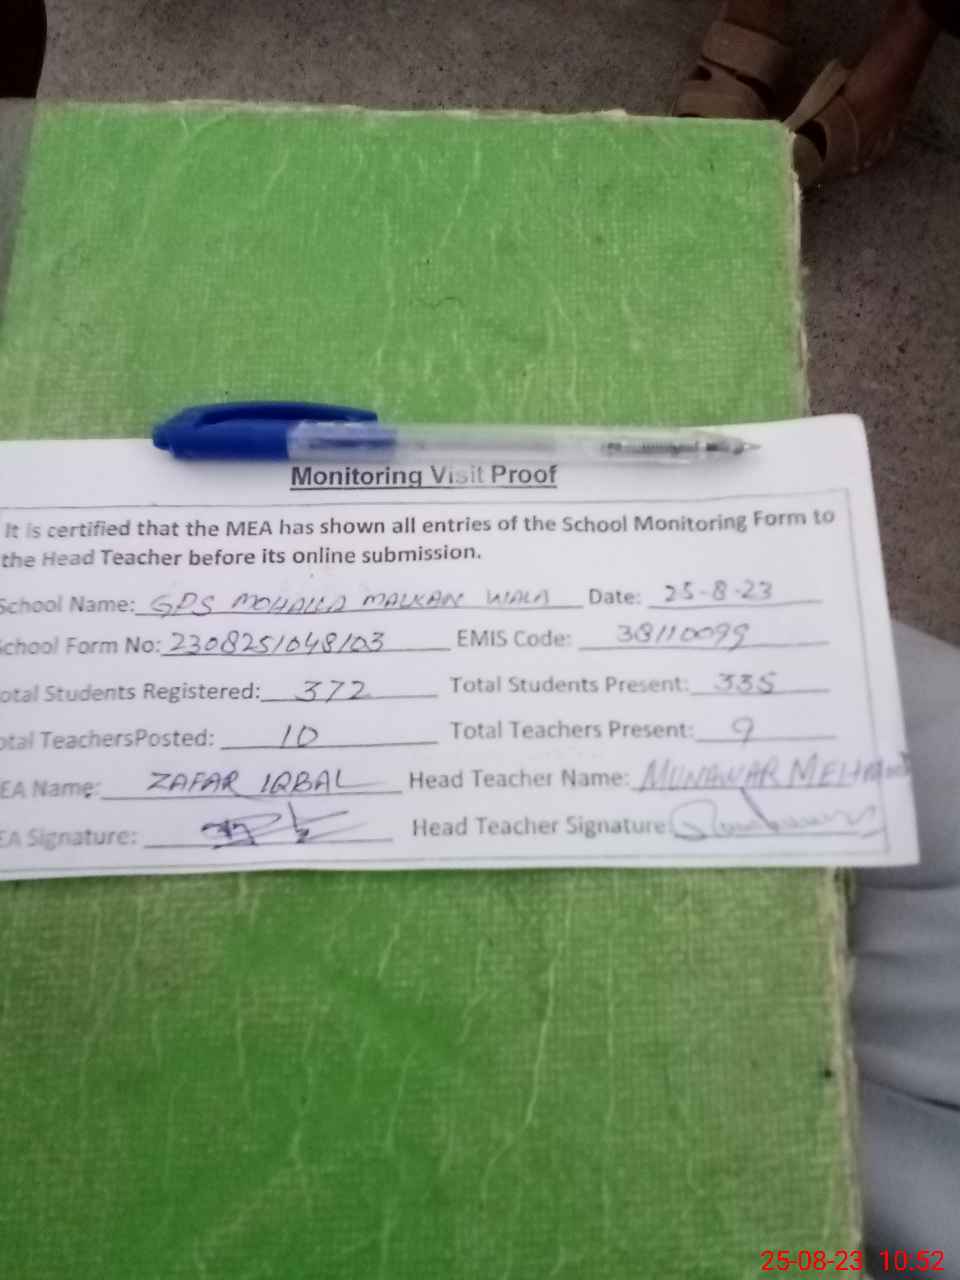 Monitoring Visit Proof
It is certified that the MEA has shown all entries of the School Monitoring Form to
the Head Teacher before its online submission.
School Name: GPS MOHALLA MALKAN WALA Date: 25-8-23
School Form No: 2308251048103 EMIS Code: 38110099
otal Students Registered: 372 Total Students Present: 335
otal TeachersPosted: 10 Total Teachers Present: 9
EA Name: ZAFAR IQBAL Head Teacher Name: MUNAWAR
EA Signature: Head Teacher Signature:
25-08-23 10:52